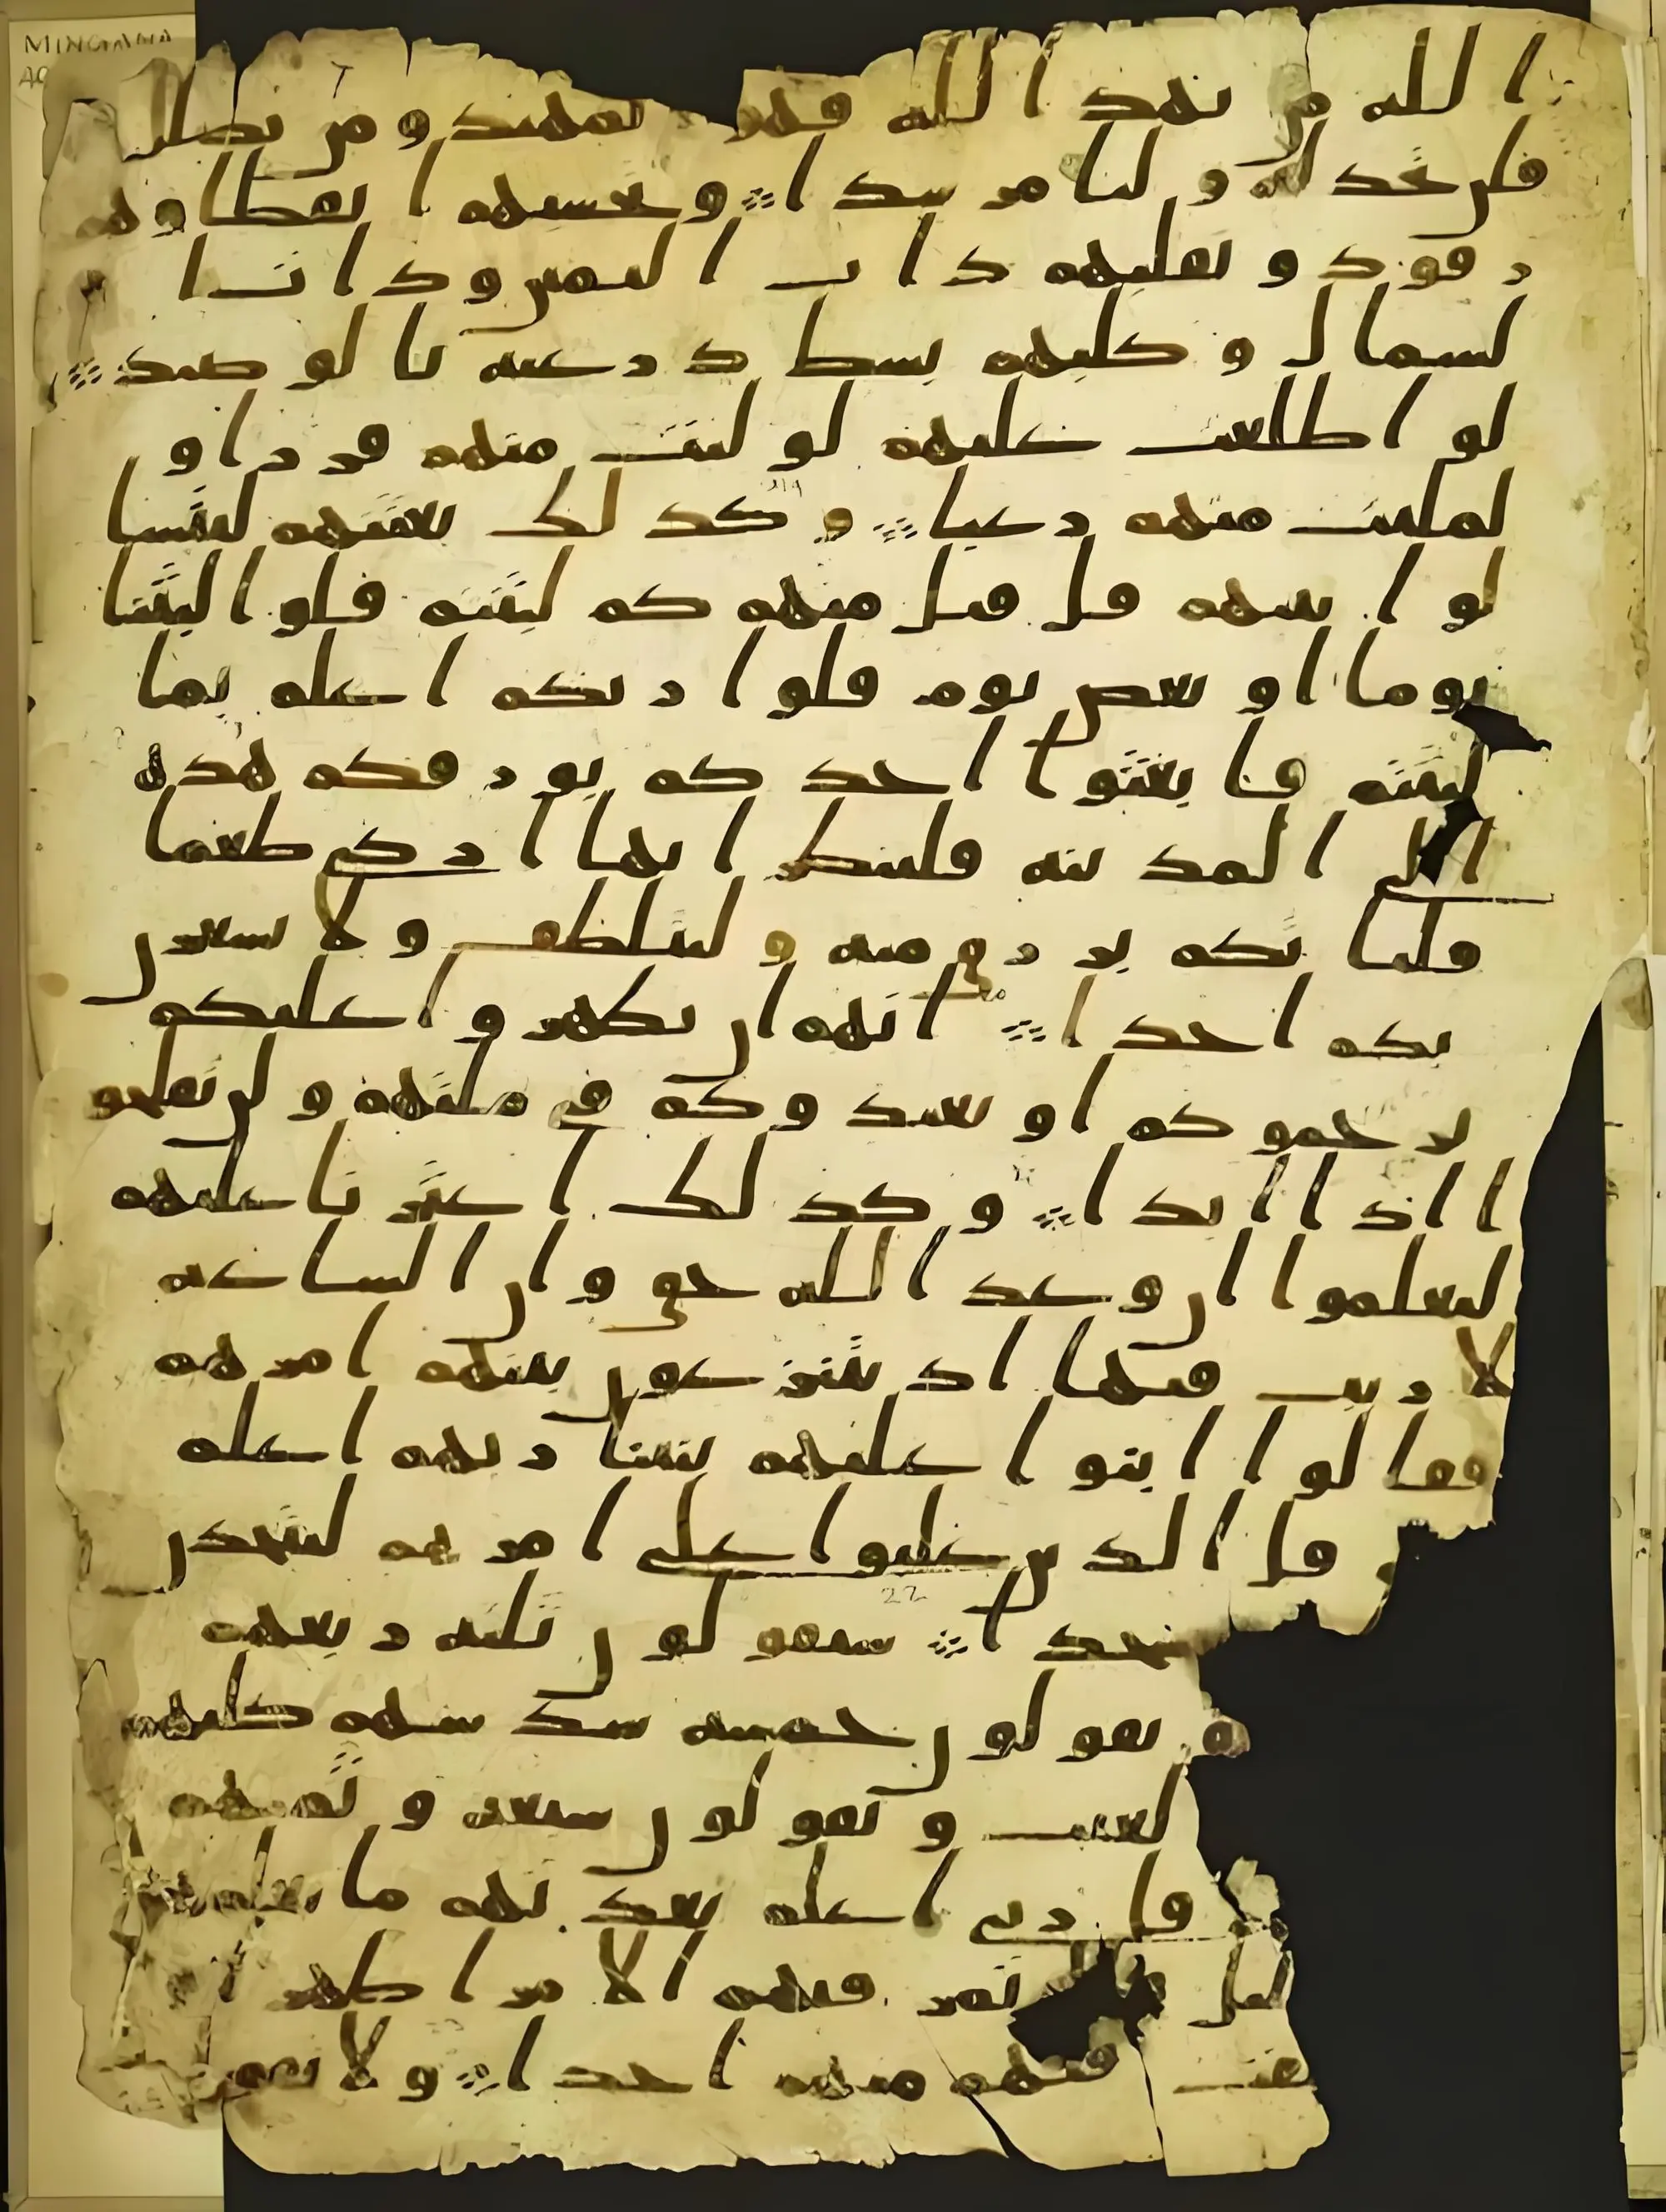 MINGANA
الله من يهد الله فهو لمهتد ومن يضلل
فلن تجد له وليا مرشدا ۝ وتحسبهم ايقظا وهم
رقود ونقلبهم ذات اليمين وذات ا
لشمال وكلبهم بسط ذرعيه بالوصيد ۝
لو اطلعت عليهم لوليت منهم فررا و
لملئت منهم رعبا ۝ وكذلك بعثنهم ليتسا
لوا بينهم قل قيل منهم كم لبثتم قلوا لبثنا
يوما او بعض يوم قلوا ربكم اعلم بما
لبثتم فابعثوا احدكم بورقكم هذه
الى المدينه فلينظر ايها ازكى طعما
فلياتكم برزق منه وليتلطف ولا يشعرن
بكم احدا ۝ انهم ان يظهروا عليكم
يرجموكم او يعيدوكم في ملتهم ولن تفلحو
ا اذا ابدا ۝ وكذلك اعثرنا عليهم
ليعلموا ان وعد الله حق وان الساعه
لا ريب فيها اذ يتنزعون بينهم امرهم
فقالوا ابنوا عليهم بنينا ربهم اعلم
قل الذين غلبوا على امرهم لنتخذن
سجدا ۝ سيقولون ثلثه ربعهم
22
ويقولون خمسه سدسهم كلبهم
لغيب ويقولون سبعه وثمنهم
قل ربي اعلم بعدتهم ما يعلمهم
ليل تمر فيهم الا مرا ظهر
تفت فيهم منهم احدا ۝ ولا تقو